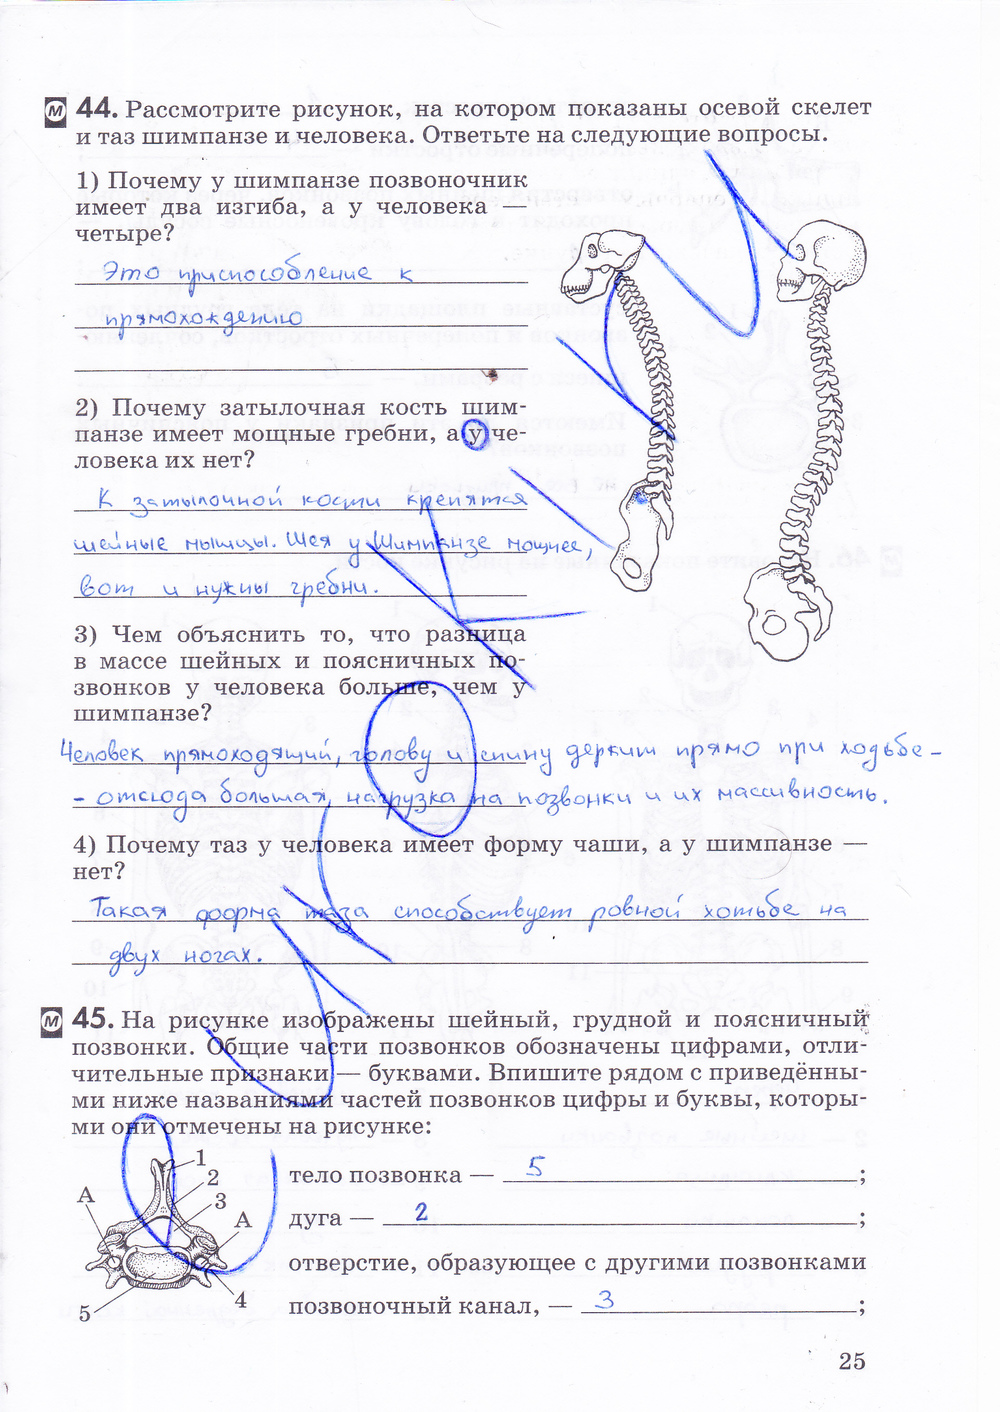 М 44. Рассмотрите рисунок, на котором показаны осевой скелет
и таз шимпанзе и человека. Ответьте на следующие вопросы.
1) Почему у шимпанзе позвоночник
имеет два изгиба, а у человека —
четыре?
Это приспособление к
прямохождению
2) Почему затылочная кость шим-
панзе имеет мощные гребни, а у че-
ловека их нет?
К затылочной кости крепятся
шейные мышцы. Шея у Шимпанзе мощнее,
вот и нужны гребни.
3) Чем объяснить то, что разница
в массе шейных и поясничных по-
звонков у человека больше, чем у
шимпанзе?
Человек прямоходящий, голову и спину держит прямо при ходьбе -
- отсюда большая нагрузка на позвонки и их массивность.
4) Почему таз у человека имеет форму чаши, а у шимпанзе —
нет?
Такая форма таза способствует ровной хотьбе на
двух ногах.
М 45. На рисунке изображены шейный, грудной и поясничный
позвонки. Общие части позвонков обозначены цифрами, отли-
чительные признаки — буквами. Впишите рядом с приведённы-
ми ниже названиями частей позвонков цифры и буквы, которы-
ми они отмечены на рисунке:
1
2
А
3
А
4
5
тело позвонка — 5 ;
дуга — 2 ;
отверстие, образующее с другими позвонками
позвоночный канал, — 3 ;
25